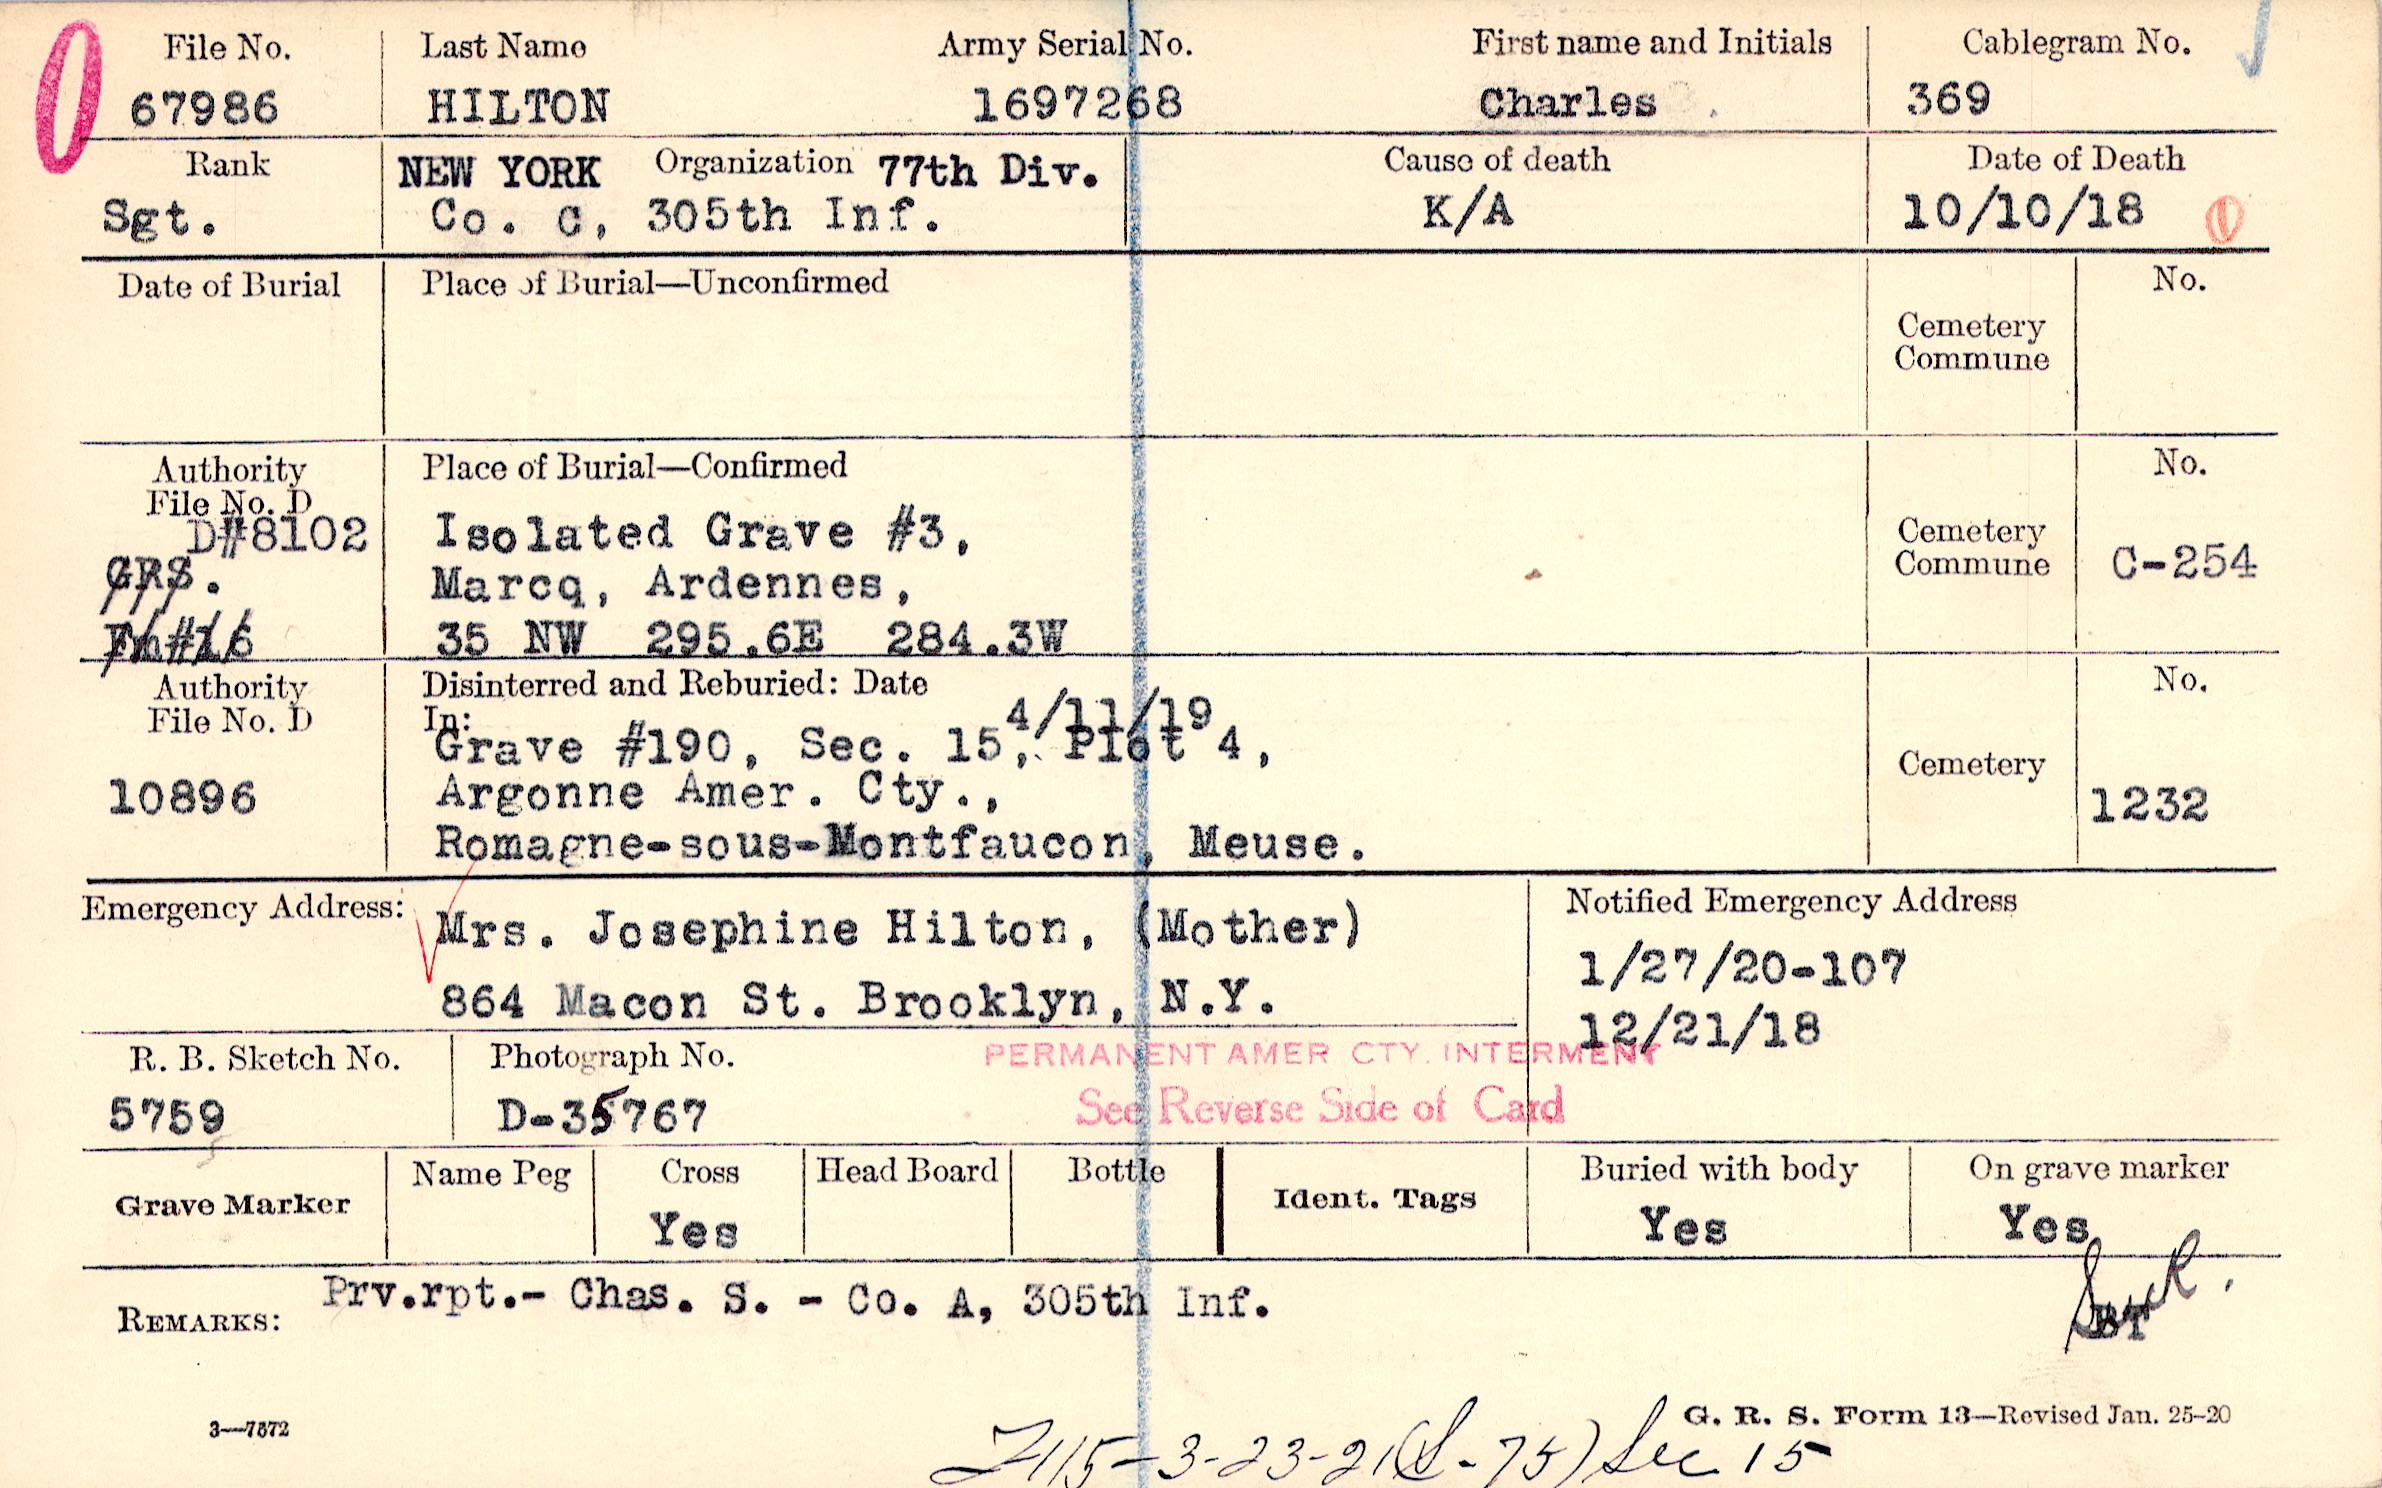 File No. Last Name Army Serial No. First name and Initials Cablegram No.
67986 HILTON 1697268 Charles 369
Rank NEW YORK Organization 77th Div. Cause of death Date of Death
Sgt. Co. C, 305th Inf. K/A 10/10/18
Date of Burial Place of Burial—Unconfirmed No.
Cemetery
Commune
Authority Place of Burial—Confirmed No.
File No. D
D#8102 Isolated Grave #3, Cemetery
GRS. Marcq, Ardennes, Commune C-254
Fm#16 35 NW 295.6E 284.3W
Authority Disinterred and Reburied: Date 4/11/19 No.
File No. D In:
Grave #190, Sec. 15, Plot 4,
Cemetery
10896 Argonne Amer. Cty., 1232
Romagne-sous-Montfaucon, Meuse.
Emergency Address: Mrs. Josephine Hilton, (Mother) Notified Emergency Address
1/27/20-107
864 Macon St. Brooklyn, N.Y. 12/21/18
R. B. Sketch No. Photograph No. PERMANENT AMER CTY. INTERMENT
5759 D-35767 See Reverse Side of Card
Grave Marker Name Peg Cross Head Board Bottle Ident. Tags Buried with body On grave marker
Yes Yes Yes
REMARKS: Prv.rpt.- Chas. S. - Co. A, 305th Inf.
BT
3—7572 G. R. S. Form 13—Revised Jan. 25-20
3-23-21 (S-75) Sec 15